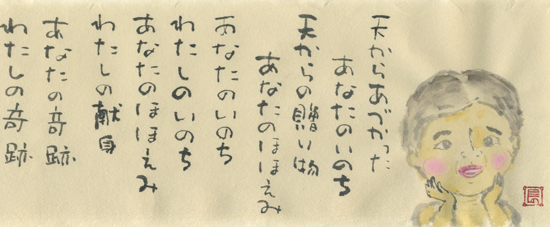 天からあづかった
あなたのいのち
天からの贈り物
あなたのほほえみ
あなたのいのち
わたしのいのち
あなたのほほえみ
わたしの献身
あなたの奇跡
わたしの奇跡